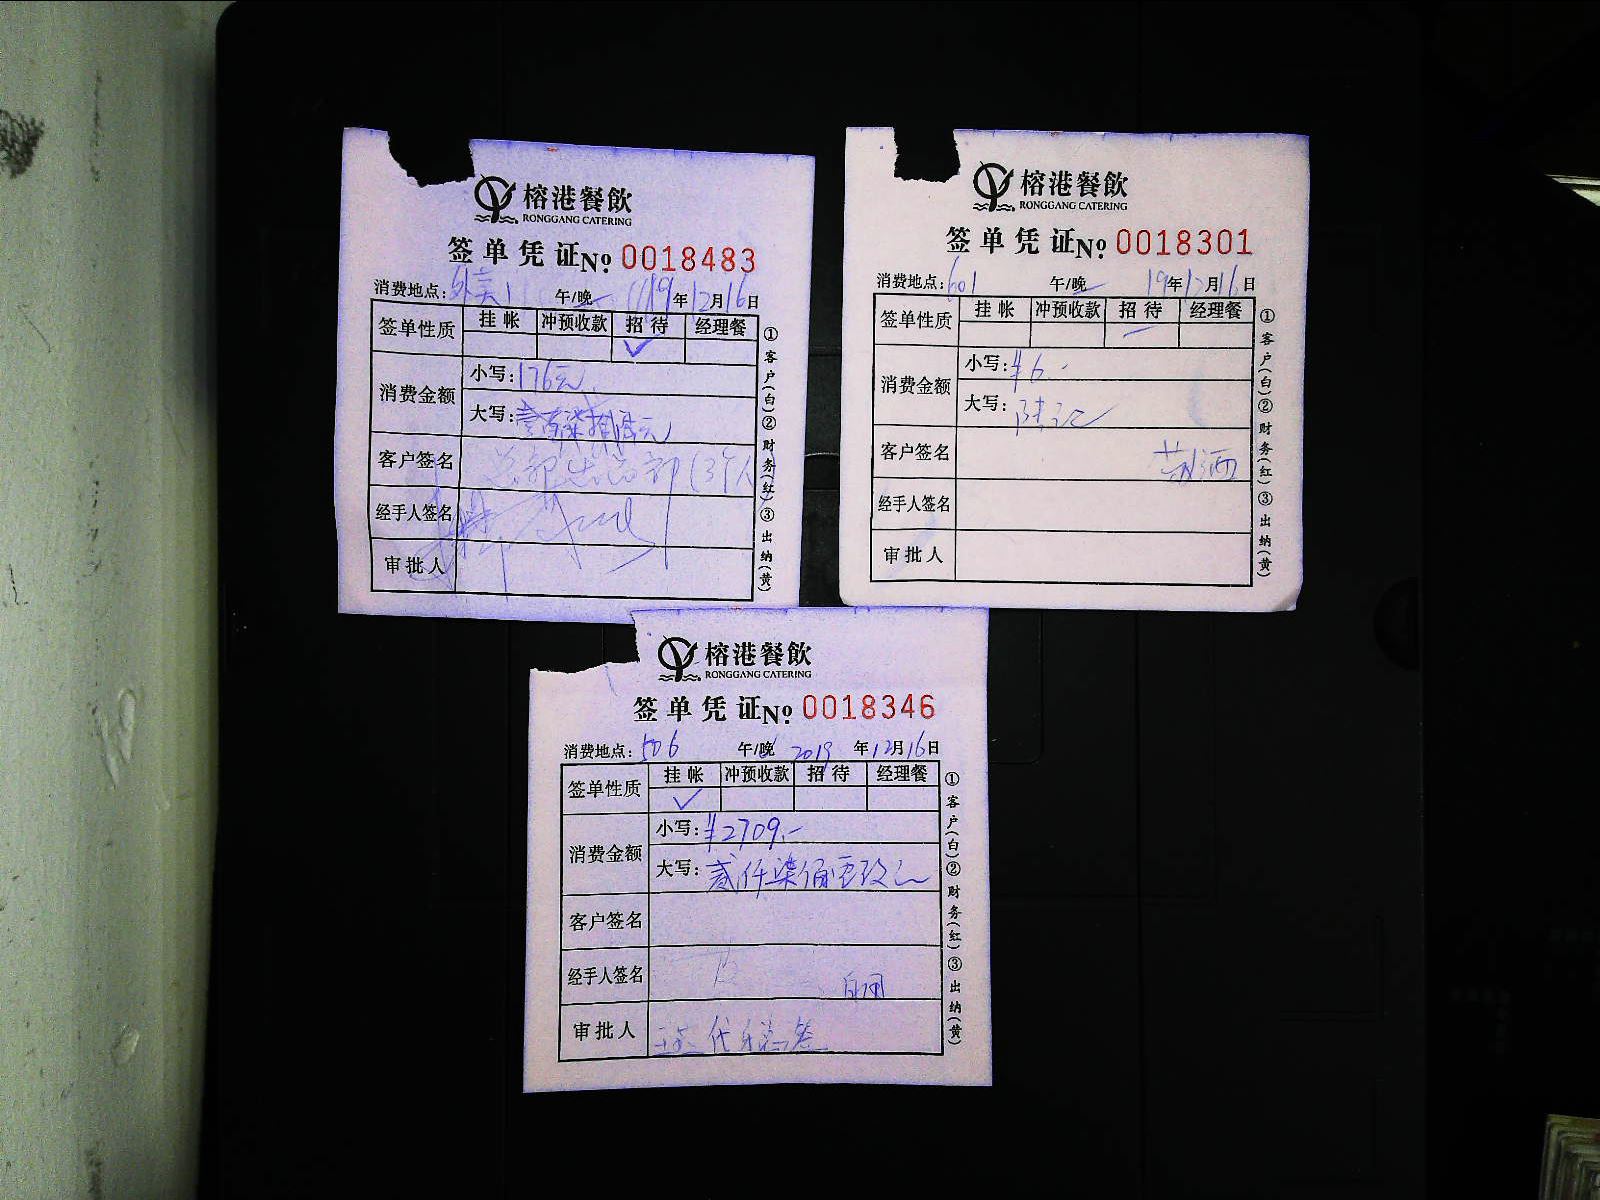 榕港餐飲
RONGGANG CATERING
签单凭证 No. 0018483
消费地点: 午/晚 19年12月16日
签单性质 挂帐 冲预收款 招待 经理餐
✓
消费金额 小写: 176元
大写: 壹佰柒拾陆元
客户签名
经手人签名
审批人
①客户(白)②财务(红)③出纳(黄)
榕港餐飲
RONGGANG CATERING
签单凭证 No. 0018301
消费地点: 601 午/晚 19年12月16日
签单性质 挂帐 冲预收款 招待 经理餐
消费金额 小写: ¥6.-
大写: 陆元
客户签名
经手人签名
审批人
①客户(白)②财务(红)③出纳(黄)
榕港餐飲
RONGGANG CATERING
签单凭证 No. 0018346
消费地点: 506 午/晚 2019年12月16日
签单性质 挂帐 冲预收款 招待 经理餐
✓
消费金额 小写: ¥2709.-
大写: 贰仟柒佰零玖元
客户签名
经手人签名
审批人
①客户(白)②财务(红)③出纳(黄)